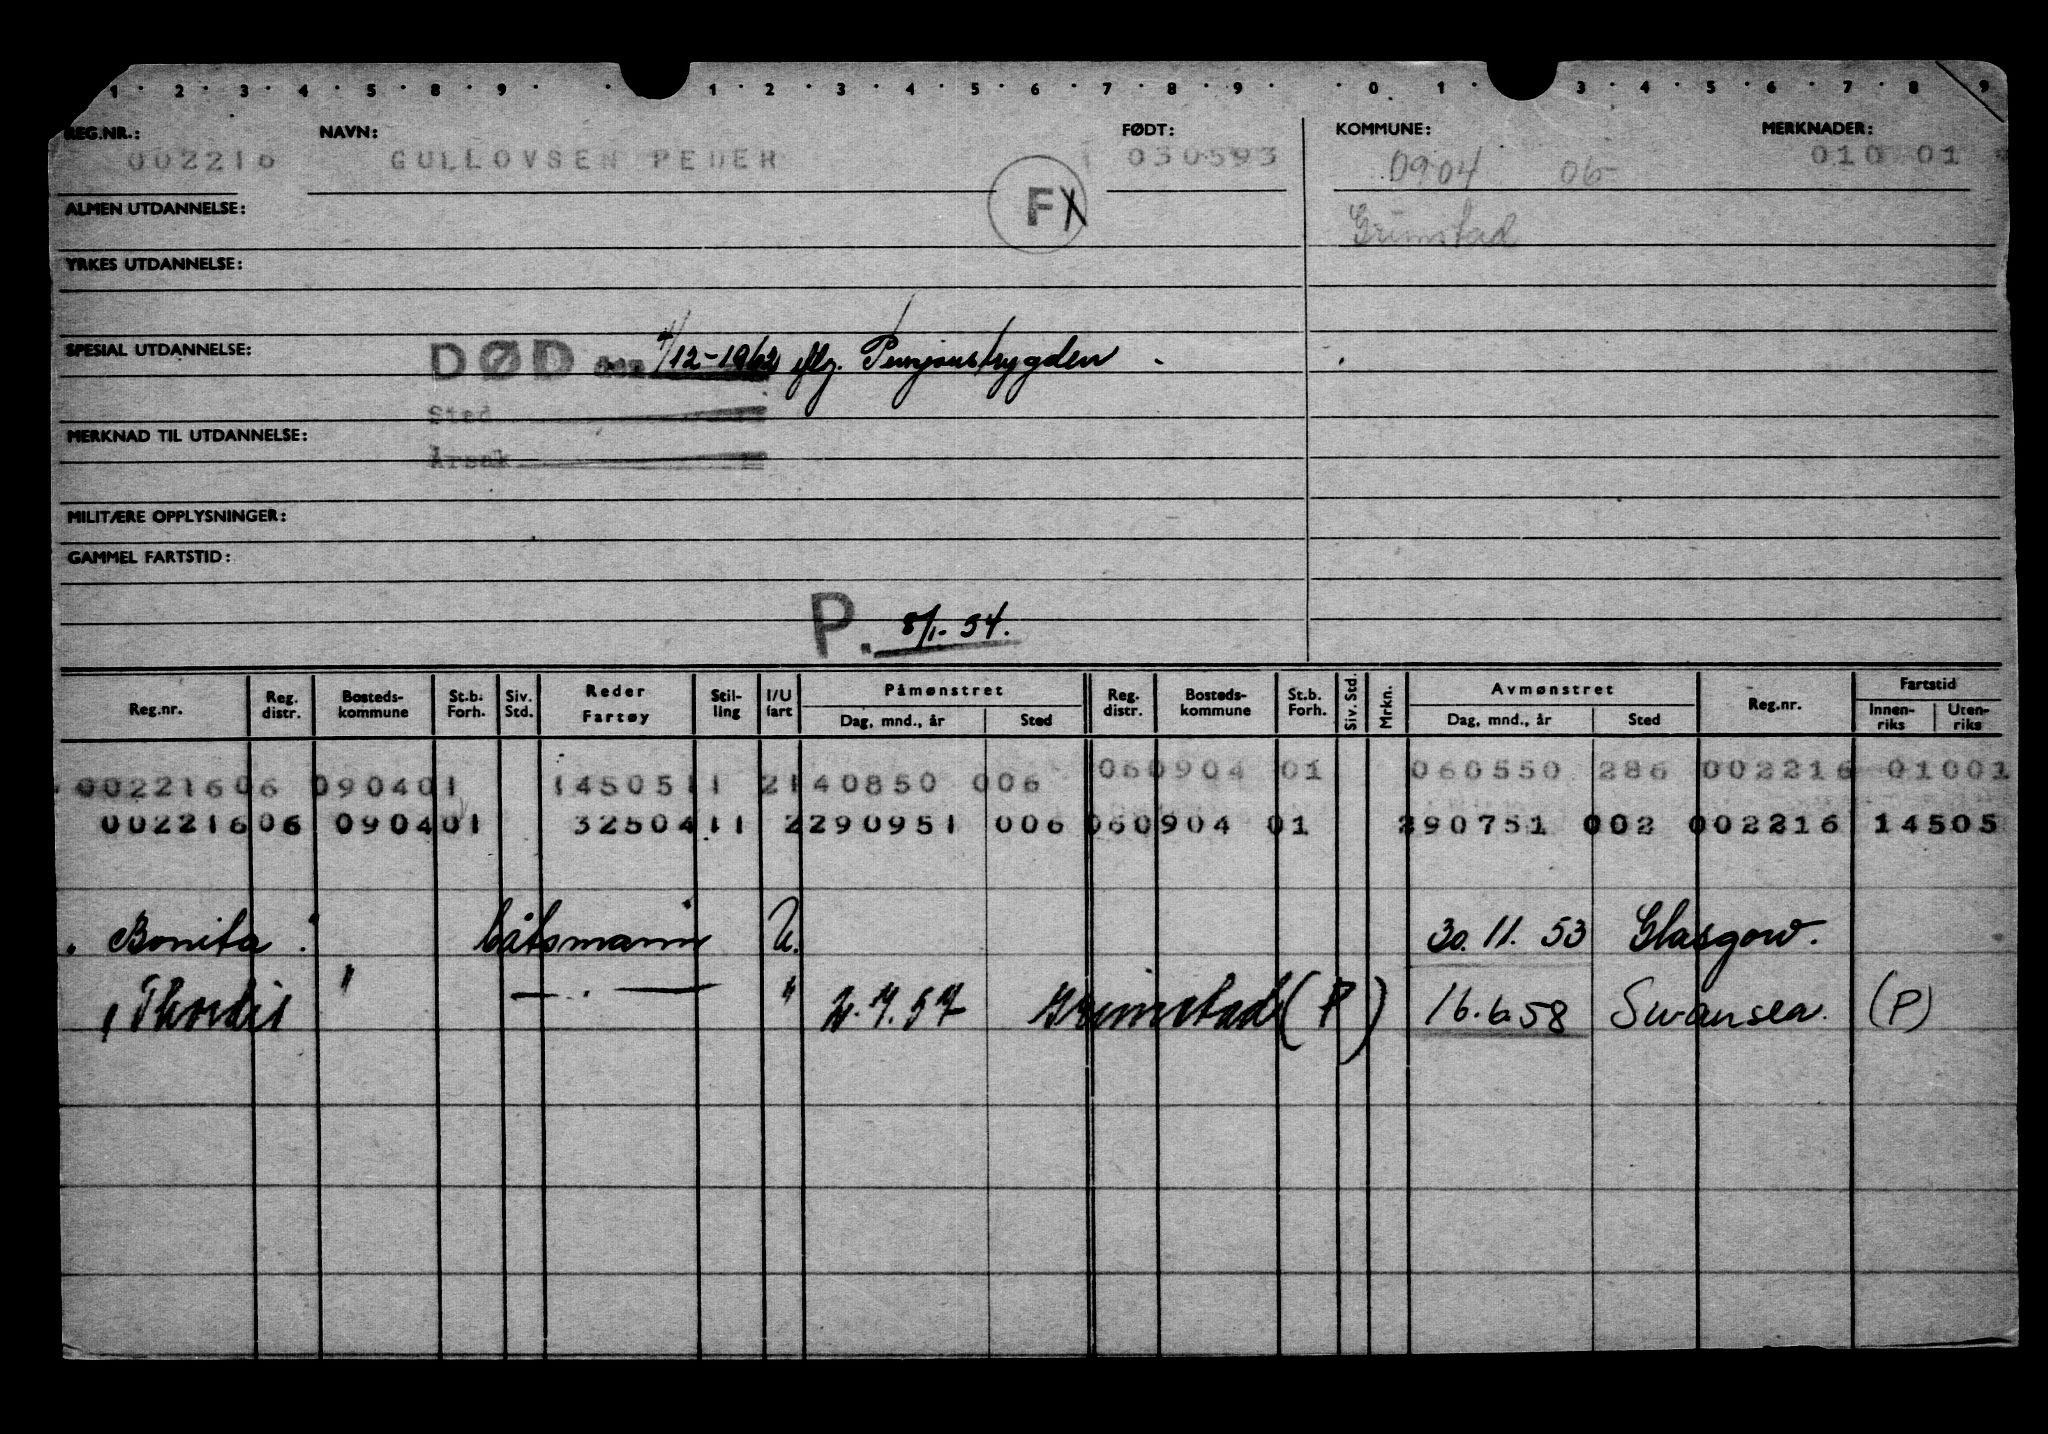 1 · 2 · 3 · 4 · 5 · 8 · 9 · · 1 · 2 · 3 · 4 · 5 · 6 · 7 · 8 · 9 · · 0 · 1 · 3 · 4 · 5 · 6 · 7 · 8 9
REG.NR.: NAVN: FØDT: KOMMUNE: MERKNADER:
002216 GULLOVSEN PEDER 030593 0904 06 010 01
FX
ALMEN UTDANNELSE: Grimstad
YRKES UTDANNELSE:
SPESIAL UTDANNELSE: DØD den 4/12-1962 iflg. Pensjonstrygden
Sted
MERKNAD TIL UTDANNELSE:
Årsak
MILITÆRE OPPLYSNINGER:
GAMMEL FARTSTID:
P. 8/1-54.
Reg.nr. Reg. distr. Bosteds-kommune St.b. Forh. Siv. Std. Reder Fartøy Stil-ling I/U fart Påmønstret Dag, mnd., år Sted Reg. distr. Bosteds-kommune St.b. Forh. Siv. Std. Mrkn. Avmønstret Dag, mnd., år Sted Reg.nr. Fartstid Innen-riks Uten-riks
00221606 090401 1450511 2140850 006 060904 01 060550 286 002216 01001
00221606 090401 3250411 2290951 006 060904 01 290751 002 002216 14505
"Bonita" båtsmann U. 30.11.53 Glasgow.
"Thordis" — " — " Grimstad (P) 16.6.58 Swansea. (P)